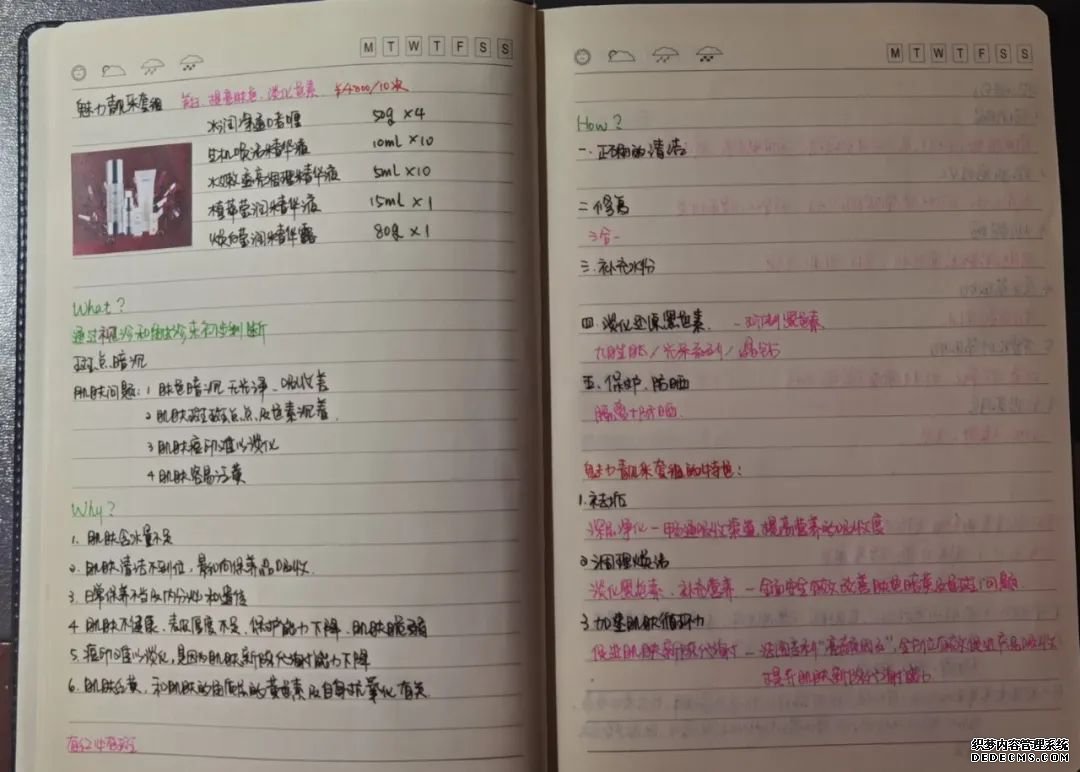 M T W T F S S
魅力靓采套组 美白、提亮肤色、淡化色素 ¥4800/10次
水润净透口香喱 50g×4
生机唤活精华液 10ml×10
水嫩盛亮调理精华液 5ml×10
植萃莹润精华液 15ml×1
焕白莹润精华露 80g×1
What?
通过视诊和触诊来初步判断
斑点、暗沉
肌肤问题:1 肤色暗沉 无光泽、吸收差
2 肌肤斑斑点点及色素沉着
3 肌肤痘印难以淡化
4 肌肤容易泛黄
Why?
1. 肌肤含水量不足
2. 肌肤清洁不到位,影响保养品吸收
3. 日常保养不当及内分泌和遗传
4 肌肤不健康、表皮厚度不足、保护能力下降、肌肤脆弱
5. 痘印难以淡化,是因为肌肤新陈代谢能力下降
6. 肌肤泛黄,和肌肤的角质层的黄色素及自身抗氧化有关
有红必有斑
M T W T F S S
How?
一、正确的清洁
二 修复
三合一
三、补充水份
四、淡化还原黑色素、一抑制黑色素
九胜肽/光采系列/晶钻
五、保护、防晒
隔离+防晒
魅力靓采套组的特色:
1. 祛垢
深层净化—畅通吸收渠道,提高营养的吸收度
2 调理焕活
淡化黑色素、补充营养—全面安全高效改善肤色暗黄及色斑问题
3. 加垫肌肤循环力
促进肌肤新陈代谢—法国专利“亮颜因子”,全方位高效促进产品吸收
提升肌肤新陈代谢能力
织梦内容管理系统
DEDECMS.COM